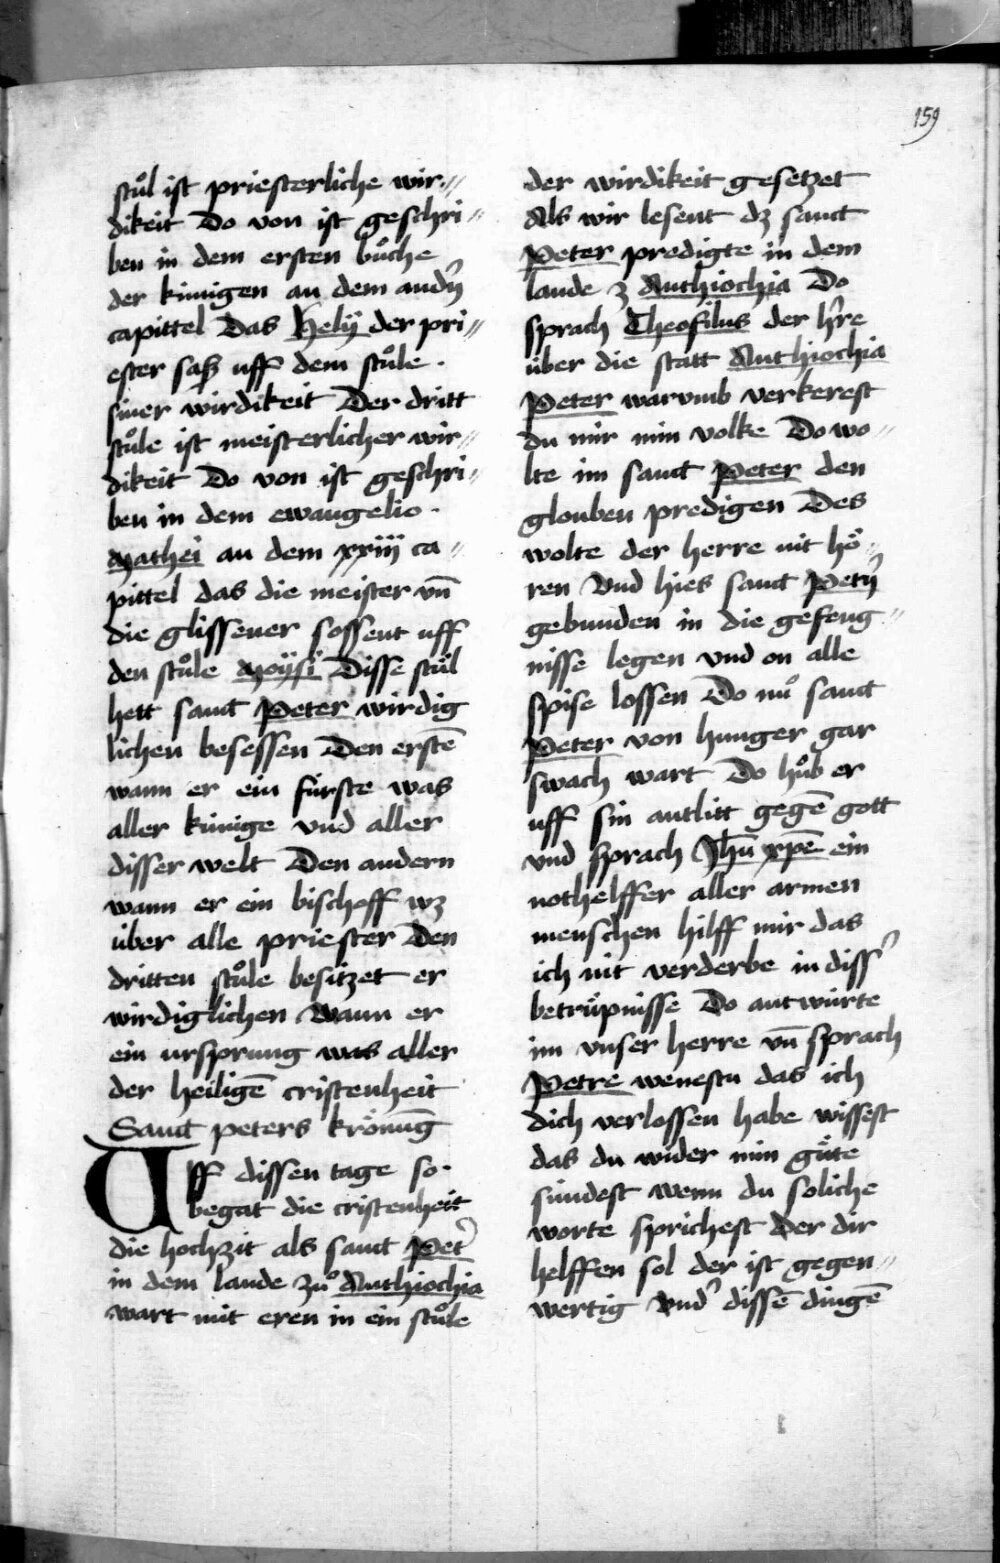 159
stůl ist priesterliche wir⸗
dikeit Do von ist geschri⸗
ben in dem ersten bůche
der kúnigen an dem andn̄
capittel Das Helÿ der pri⸗
ester saß uff dem stůle ·
siner wirdikeit Der dritt
stůle ist meisterlicher wir⸗
dikeit Do von ist geschri⸗
ben in dem ewangelio ·
Mathei an dem xxiij ca⸗
pittel das die meister vn̄
die glissener sossent uff
den stůle Moÿsi Disse stůl
hett sanct Peter wirdig
lichen besessen Den erstē
wann er ein fúrste was
aller kúnige vnd aller
disser welt Den andern
wann er ein bischoff wz
úber alle priester Den
dritten stůle besitzet er
wirdiglichen Wann er
ein ursprung was aller
der heiligē cristenheit
Sanct peters krönūg
Uff dissen tage so·
begat die cristenheit
die hochzit als sanct Pet̾
in dem lande zů Anthiochia
wart mit eren in ein stůle
der wirdikeit gesetzet
Als wir lesent dz sanct
Peter predigte in dem
lande z Anthiochia Do
sprach Theofilus der h̾re
úber die statt Anthiochia
Peter warvmb verkerest
du mir min volke Do wo⸗
lte im sanct Peter den
glouben predigen Des
wolte der herre nit hö⸗
ren Vnd hies sanct Pet̾n
gebunden in die gefeng⸗
nisse legen vnd on alle
spise lossen Do nů sanct
Peter von hunger gar
swach wart Do hůb er
uff sin antlitt gegē gott
vnd sprach Jhū xp̄e ein
nothelffer aller armen
menschen hilff mir das
ich nit verderbe in diss̾
betrúpnisse Do antwúrte
im vnser herre vn̄ sprach
Petre wenestu das ich
dich verlossen habe wissest
das du wider min gůte
súndest wenn du soliche
worte sprichest Der dir
helffen sol der ist gegen⸗
wertig vnd̾ dissē dingē